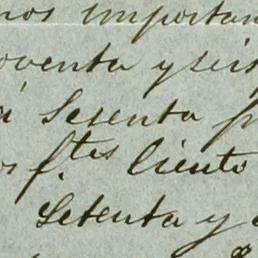 nos importan
oventa y seis
á Sesenta
os f.tes Ciento
Setenta y